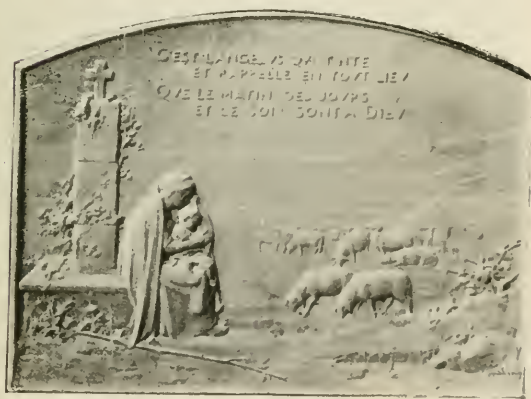 C'EST L'ANGELVS QVI TINTE
ET RAPPELLE EN TOVT LIEV
QVE LE MATIN DES JOVRS
ET LE SOIR SONT A DIEV